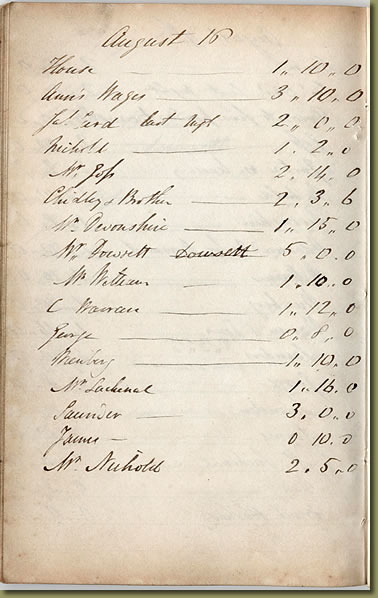 August 16
House 1 " 10 " 0
Ann's Wages 3 " 10 " 0
Last 2 " 0 " 0
Nichold 1 " 2 " 0
Mr 2 " 14 " 0
Chidley & Brother 2 . 3 . 6
Mr Devonshire 1 " 15 . 0
Mr Dowsett Dowsett 5 . 0 . 0
Mr William 1 . 10 . 0
C Warran 1 .. 12 . 0
George 0 . 8 . 0
1 .. 10 . 0
Mr Lachenal 1 .. 16 . 0
Saunder 3 . 0 . 0
James 0 10 . 0
Mr Nichold 2 . 5 . 0